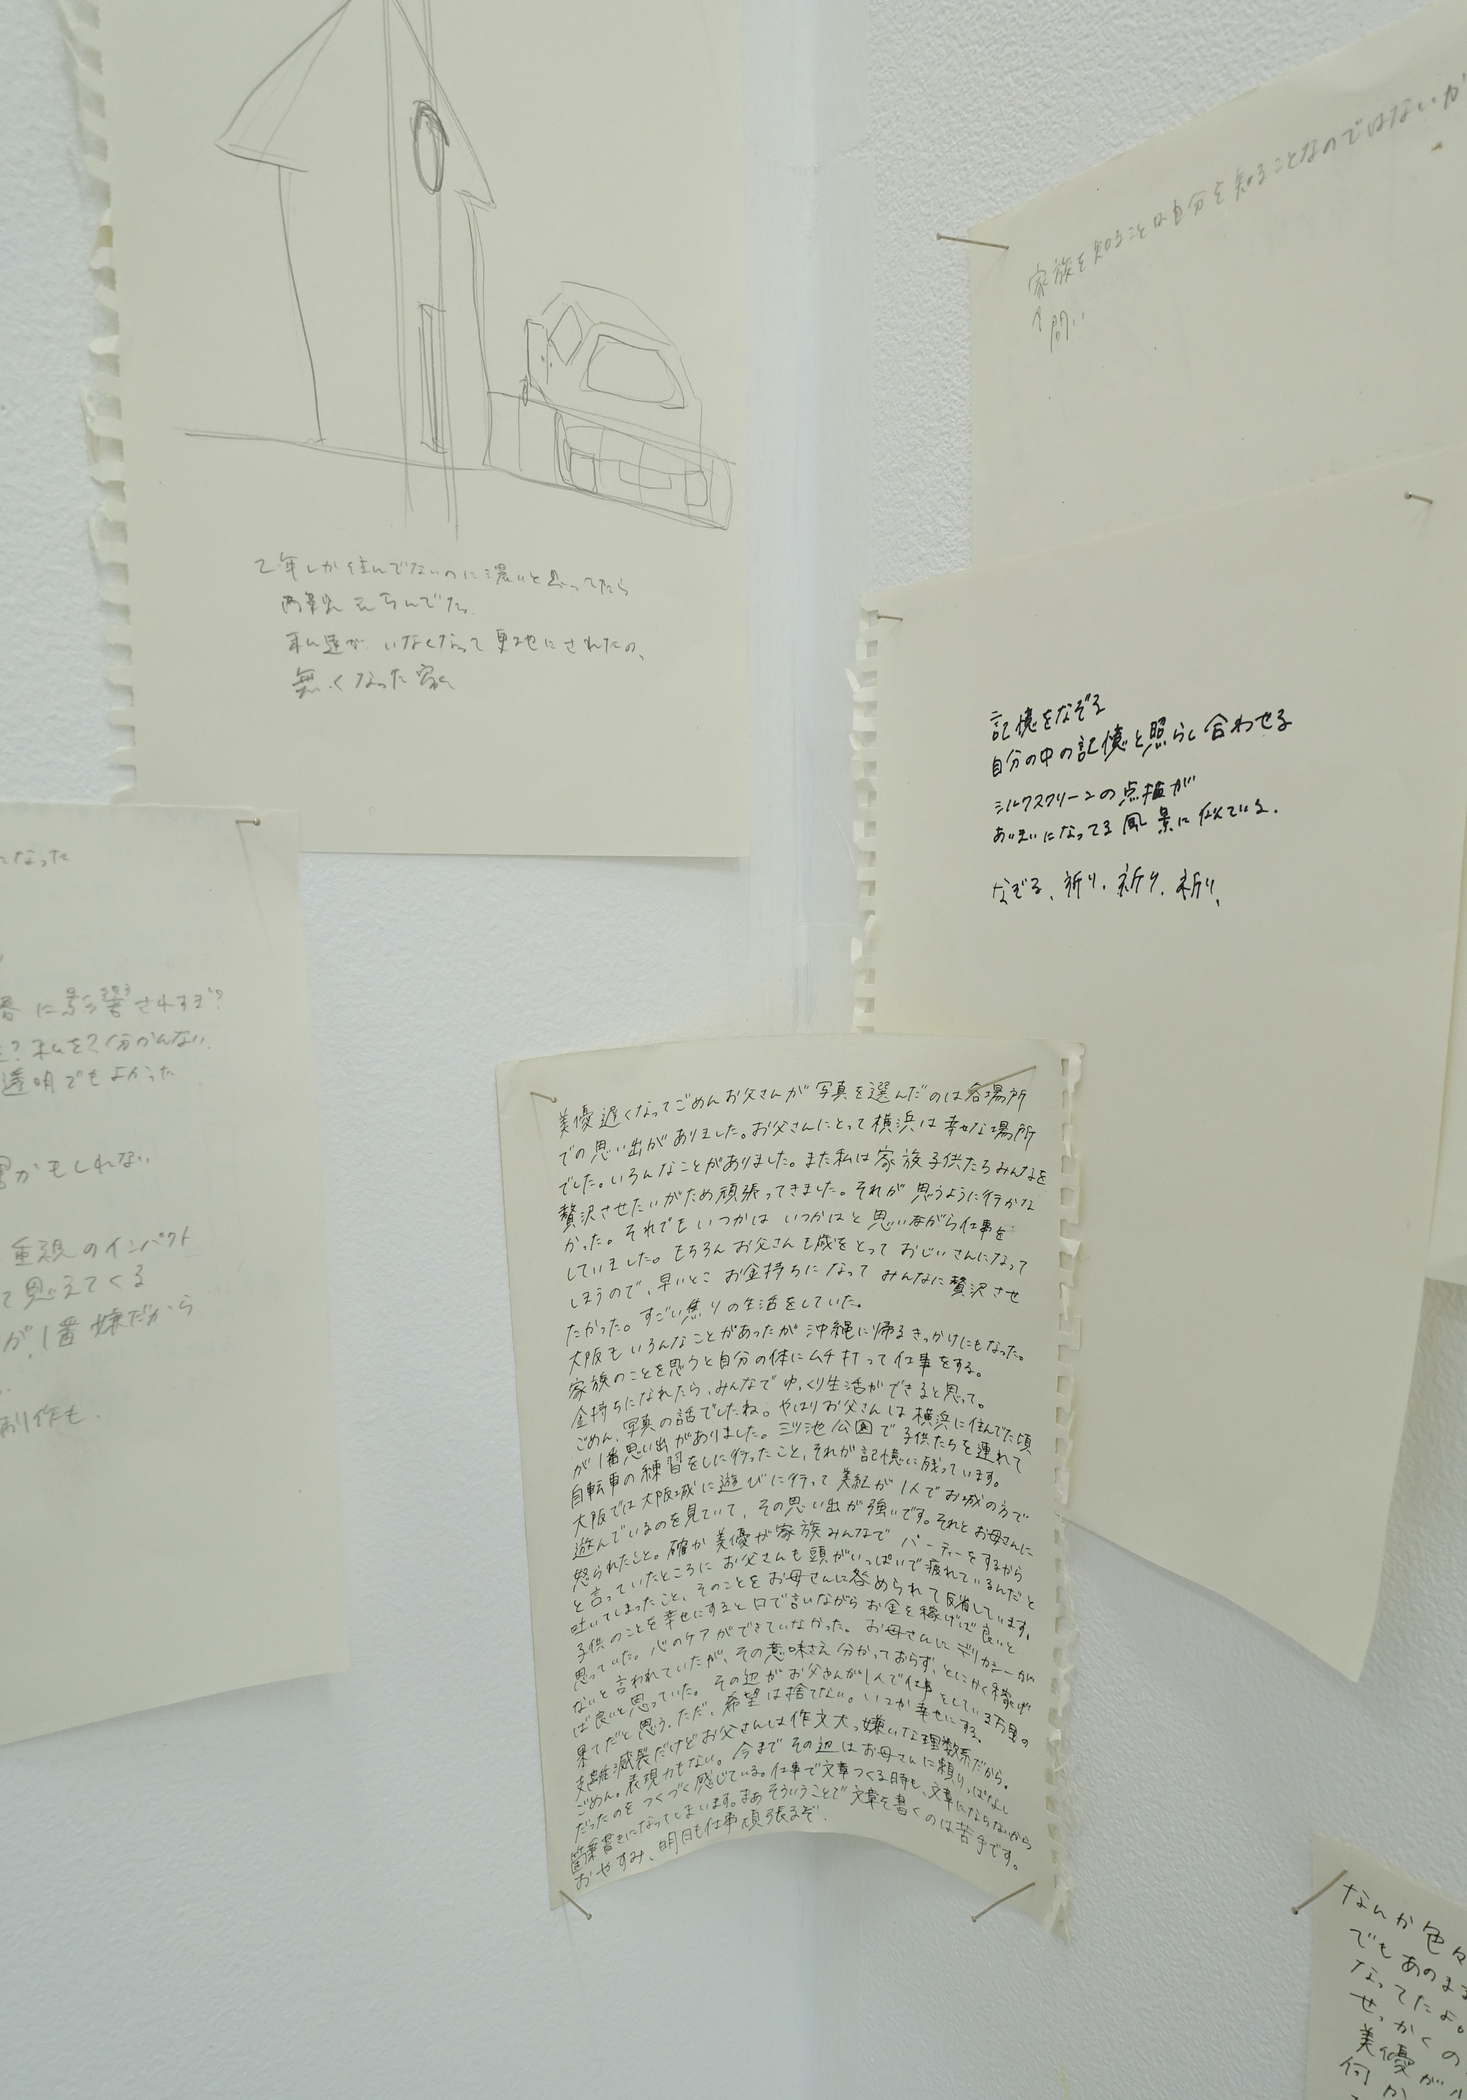 2年しか住んでないのに濃いと思ってたら
両親も言ってた
私達がいなくなって更地にされたの、
無くなった家
家族を知ることは自分を知ることなのではないか
↑問い
記憶をなぞる
自分の中の記憶と照らし合わせる
シルクスクリーンの点描が
あいまいになってる風景に似ている.
なぞる、祈り.祈り.祈り、
になった
に影響されすぎ?
?私を?分かんない.
透明でもよかった
かもしれない
重視のインパクト
て思えてくる
が、1番嫌だから
制作も.
美優遅くなってごめんお父さんが写真を選んだのは各場所
での思い出がありました。お父さんにとって横浜は幸せな場所
でした。いろんなことがありました。また私は家族子供たちみんなを
贅沢させたいがため頑張ってきました。それが思うように行かな
かった。それでもいつかはいつかはと思いながら仕事を
していました。もちろんお父さんも歳をとっておじいさんになって
しまうので、早いとこお金持ちになってみんなに贅沢させ
たかった。すごい焦りの生活をしていた。
大阪もいろんなことがあったが沖縄に帰るきっかけにもなった。
家族のことを思うと自分の体にムチ打って仕事をする。
金持ちになれたら、みんなでゆっくり生活ができると思って。
ごめん、写真の話でしたね。やはりお父さんは横浜に住んでた頃
が1番思い出がありました。三ツ池公園で子供たちを連れて
自転車の練習をしに行ったこと、それが記憶に残っています。
大阪では大阪城に遊びに行って美紅が1人でお城の方で
遊んでいるのを見ていて、その思い出が強いです。それとお母さんに
怒られたこと。確か美優が家族みんなでパーティーをするから
と言っていたところにお父さんも頭がいっぱいで疲れているんだと
吐いてしまったこと、そのことをお母さんに咎められて反省しています。
子供のことを幸せにすると口で言いながらお金を稼げば良いと
思っていた。心のケアができていなかった。お母さんにデリカシーが
ないと言われていたが、その意味さえ分かっておらず、とにかく稼げ
ば良いと思っていた。その辺がお父さんが1人で仕事をしている万里の
果てだと思う.ただ、希望は捨てない。いつか幸せにする。
支離滅裂だけどお父さんは作文大っ嫌いな理数系だから。
ごめん。表現力もない。今までその辺はお母さんに頼りっぱなし
だったのをつくづく感じている。仕事で文章つくる時も、文章にならないから
箇条書きになってしまいます。まあそういうことで文章を書くのは苦手です。
おやすみ、明日も仕事頑張るぞ.
なんか色々
でもあのまま
なってたよ。
せっかくの
美優が
何か